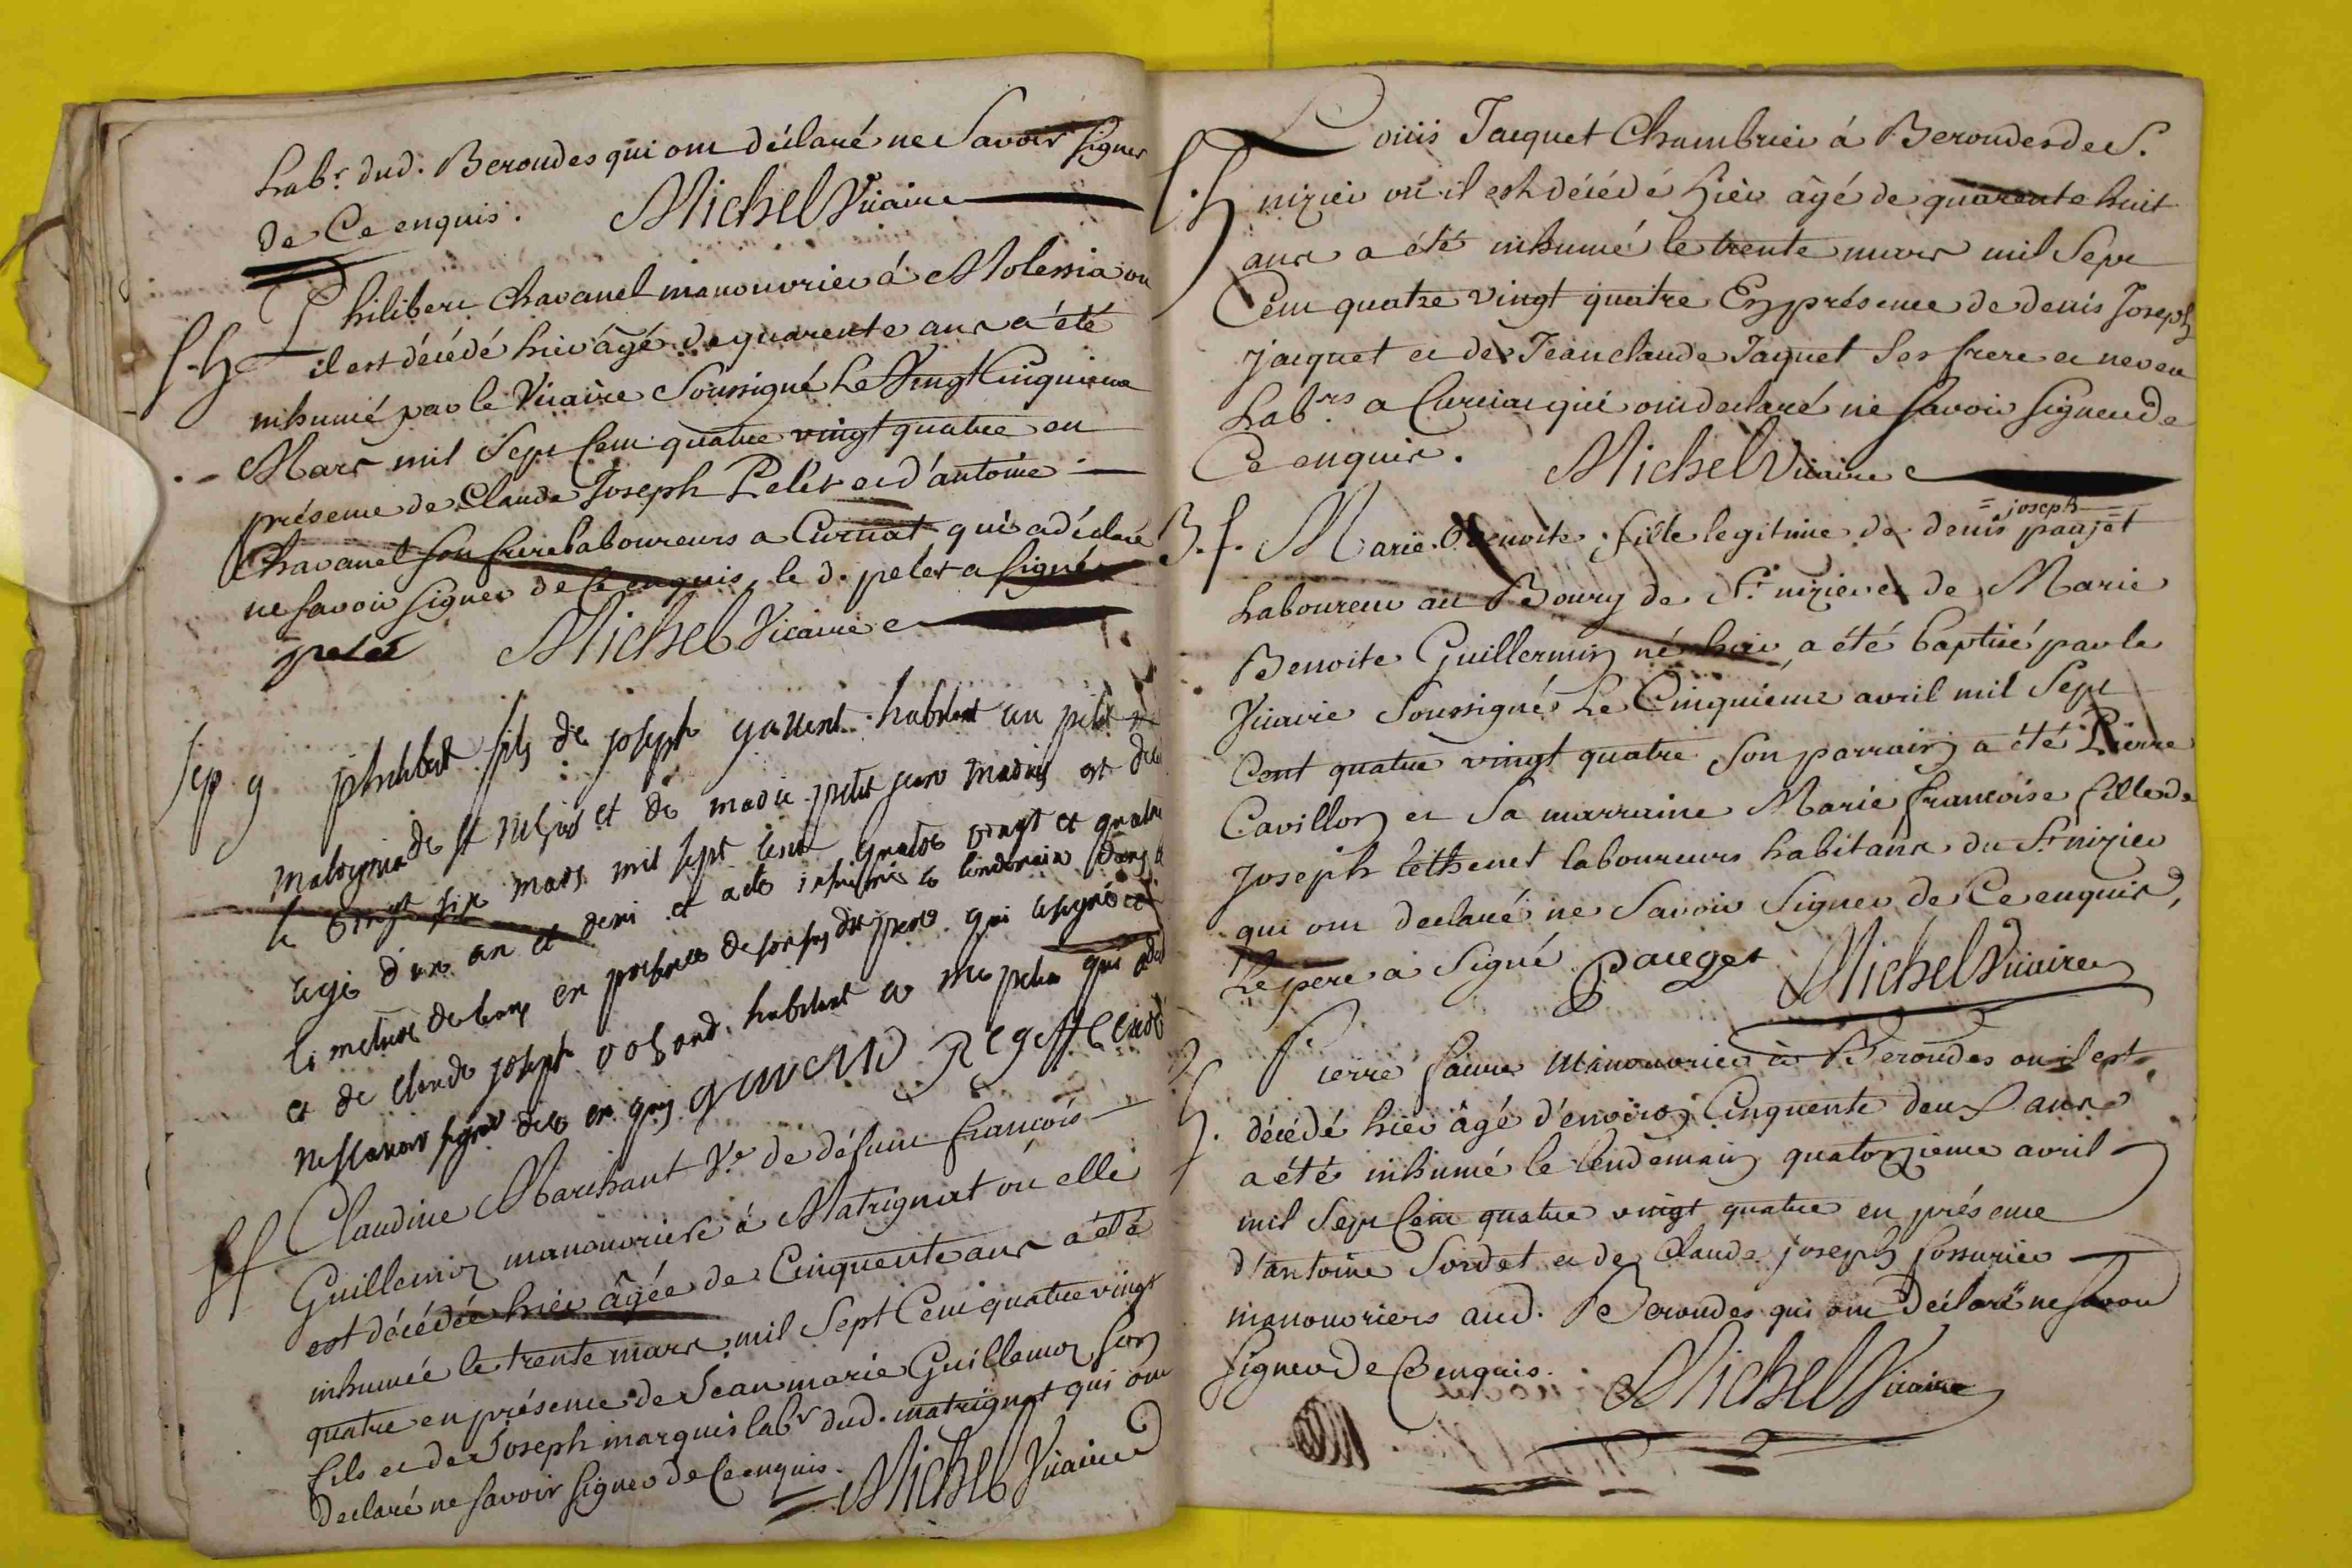 Labr. dud. Beroudes qui ont déclaré ne Savoir signer
de Ce enquis. Michel Vicaire
S.h Philibert Chavanel manouvrier à Molessia ou
il est décédé hier âgé de quarente ans a été
inhumé par le Vicaire Soussigné Le Vingt Cinquieme
Mars mil Sept Cent quatre vingt quatre en
présence de Claude Joseph Pelet et d'antoine
Chavanel son frere laboureurs a Curciat qui a déclaré
ne savoir signer de Ce enquis, le d. pelet a signé
pelet Michel Vicaire
Sep. g philibert fils de joseph gauvent habitant au petit
de st et de marie petit jean mariés est
le vingt six mars mil sept cent quatre vingt et quatre
agé d'un an et demi et a été inhumé le lendemain dans
le de ceans en presence de son pere qui a signé
et de claude joseph habitant a qui
ne scavoir signer de ce en quis
Sf Claudine Marchant Ve de défunt françois
Guillemin manouvriere à Matrignat ou elle
est décédée hier âgée de Cinquente ans a été
inhumée le trente mars mil Sept Cent quatre vingt
quatre en présence de Jean marie Guillemin son
fils et de Joseph marquis labr dud. matrignat qui ont
declaré ne savoir signer de Ce enquis. Michel Vicaire
S.h Louis Jacquet Chambrier á Beroudes de S.
nizier ou il est décédé hier âgé de quarente huit
ans a été inhumé le trente mars mil Sept
Cent quatre vingt quatre En présence de denis Joseph
jacquet et de Jean claude Jaquet Ses frere et neveu
Labrs a Curciat qui ont declaré ne savoir signer de
Ce enquis. Michel Vicaire
= joseph =
B.f. Marie Benoite fille legitime de denis paujet
Laboureur au Bourg de St. nizier et de Marie
Benoite Guillermin né hier, a été baptisé par le
Vicaire Soussigné Le Cinquieme avril mil Sept
Cent quatre vingt quatre Son parrain a été Pierre
Cavillon et Sa marraine Marie francoise fille de
Joseph lethenet laboureurs habitans du St nizier
qui ont declaré ne Savoir Signer de Ce enquis,
Le pere a Signé Pauget Michel Vicaire
S.h. Pierre faivre Manouvrier à Beroudes ou il est
décédé hier âgé d'environ Cinquente deux ans
a été inhumé le lendemain quatorzieme avril
mil Sept Cent quatre vingt quatre en présence
d'antoine Sordet et de Claude joseph fossurier
manouvriers aud. Beroudes qui ont Déclaré ne savoir
Signer de Ce enquis. Michel Vicaire